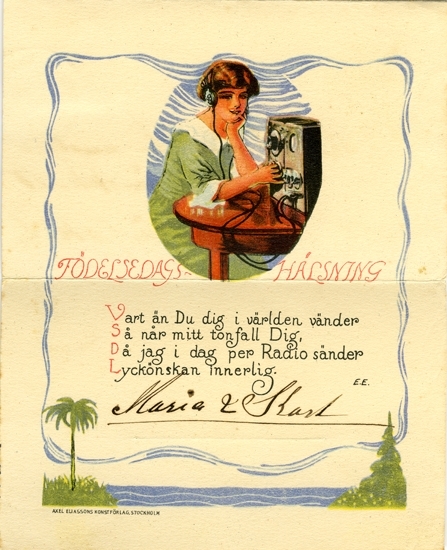 FÖDELSEDAGS~HÄLSNING
Vart än Du dig i världen vänder
Så når mitt tonfall Dig,
Då jag i dag per Radio sänder
Lyckönskan innerlig.
E.E.
Maria & Skart
AXEL ELIASSONS KONSTFÖRLAG, STOCKHOLM